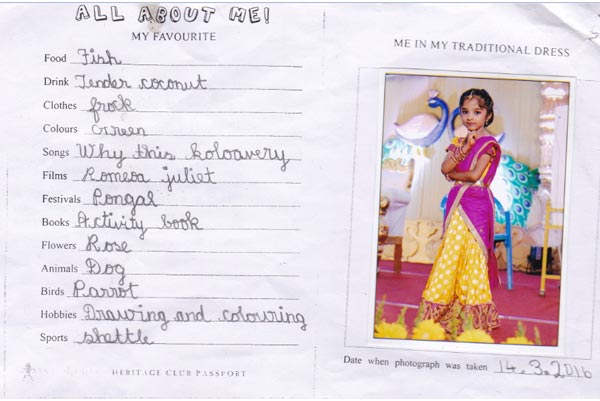 ALL ABOUT ME!
MY FAVOURITE
Food Fish
Drink Tender coconut
Clothes frock
Colours Green
Songs Why this koloavery
Films Romeoa juliet
Festivals Pongal
Books Activity book
Flowers Rose
Animals Dog
Birds Parrot
Hobbies Drawing and colouring
Sports shettle
HERITAGE CLUB PASSPORT
ME IN MY TRADITIONAL DRESS
Date when photograph was taken 14.3.2016